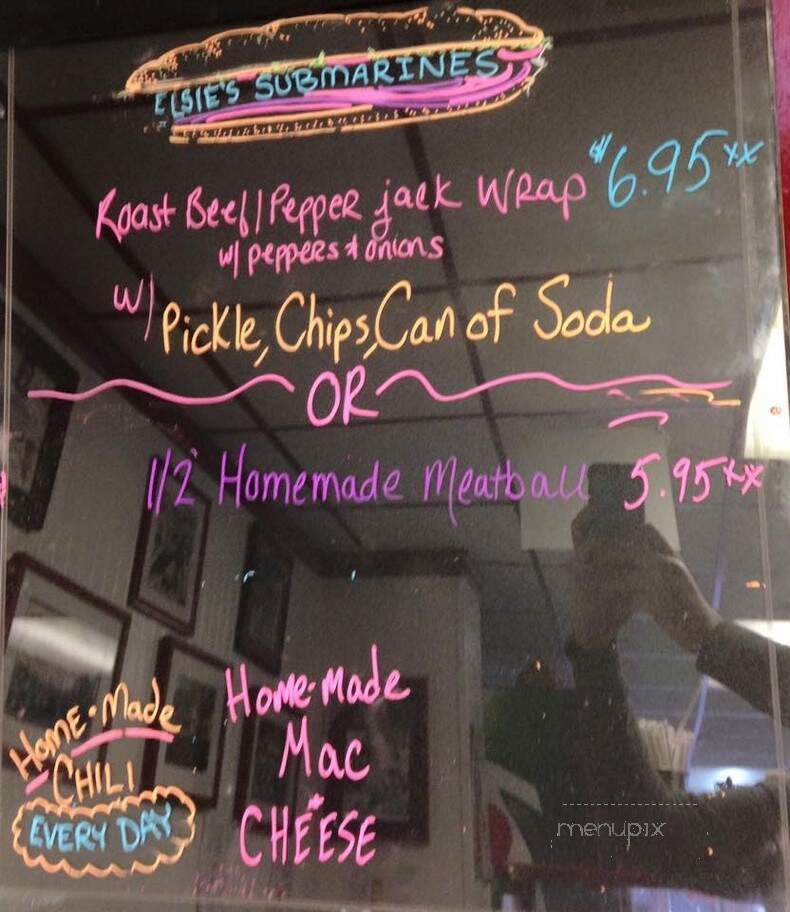 ELSIE'S SUBMARINES
Roast Beef/Pepper jack Wrap $6.95xx
w/ peppers & onions
w/ Pickle, Chips, Can of Soda
OR
1/2 Homemade Meatball 5.95xx
Home-Made
CHILI
EVERY DAY
Home-made
Mac
*
CHEESE
menupix